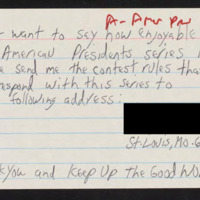 A-Am Pr
want to say how enjoyable
American Presidents series
send me the contest rules tha
respond with this series to
following address:
St. Louis, MO. 6
k you and Keep Up The Good Wo